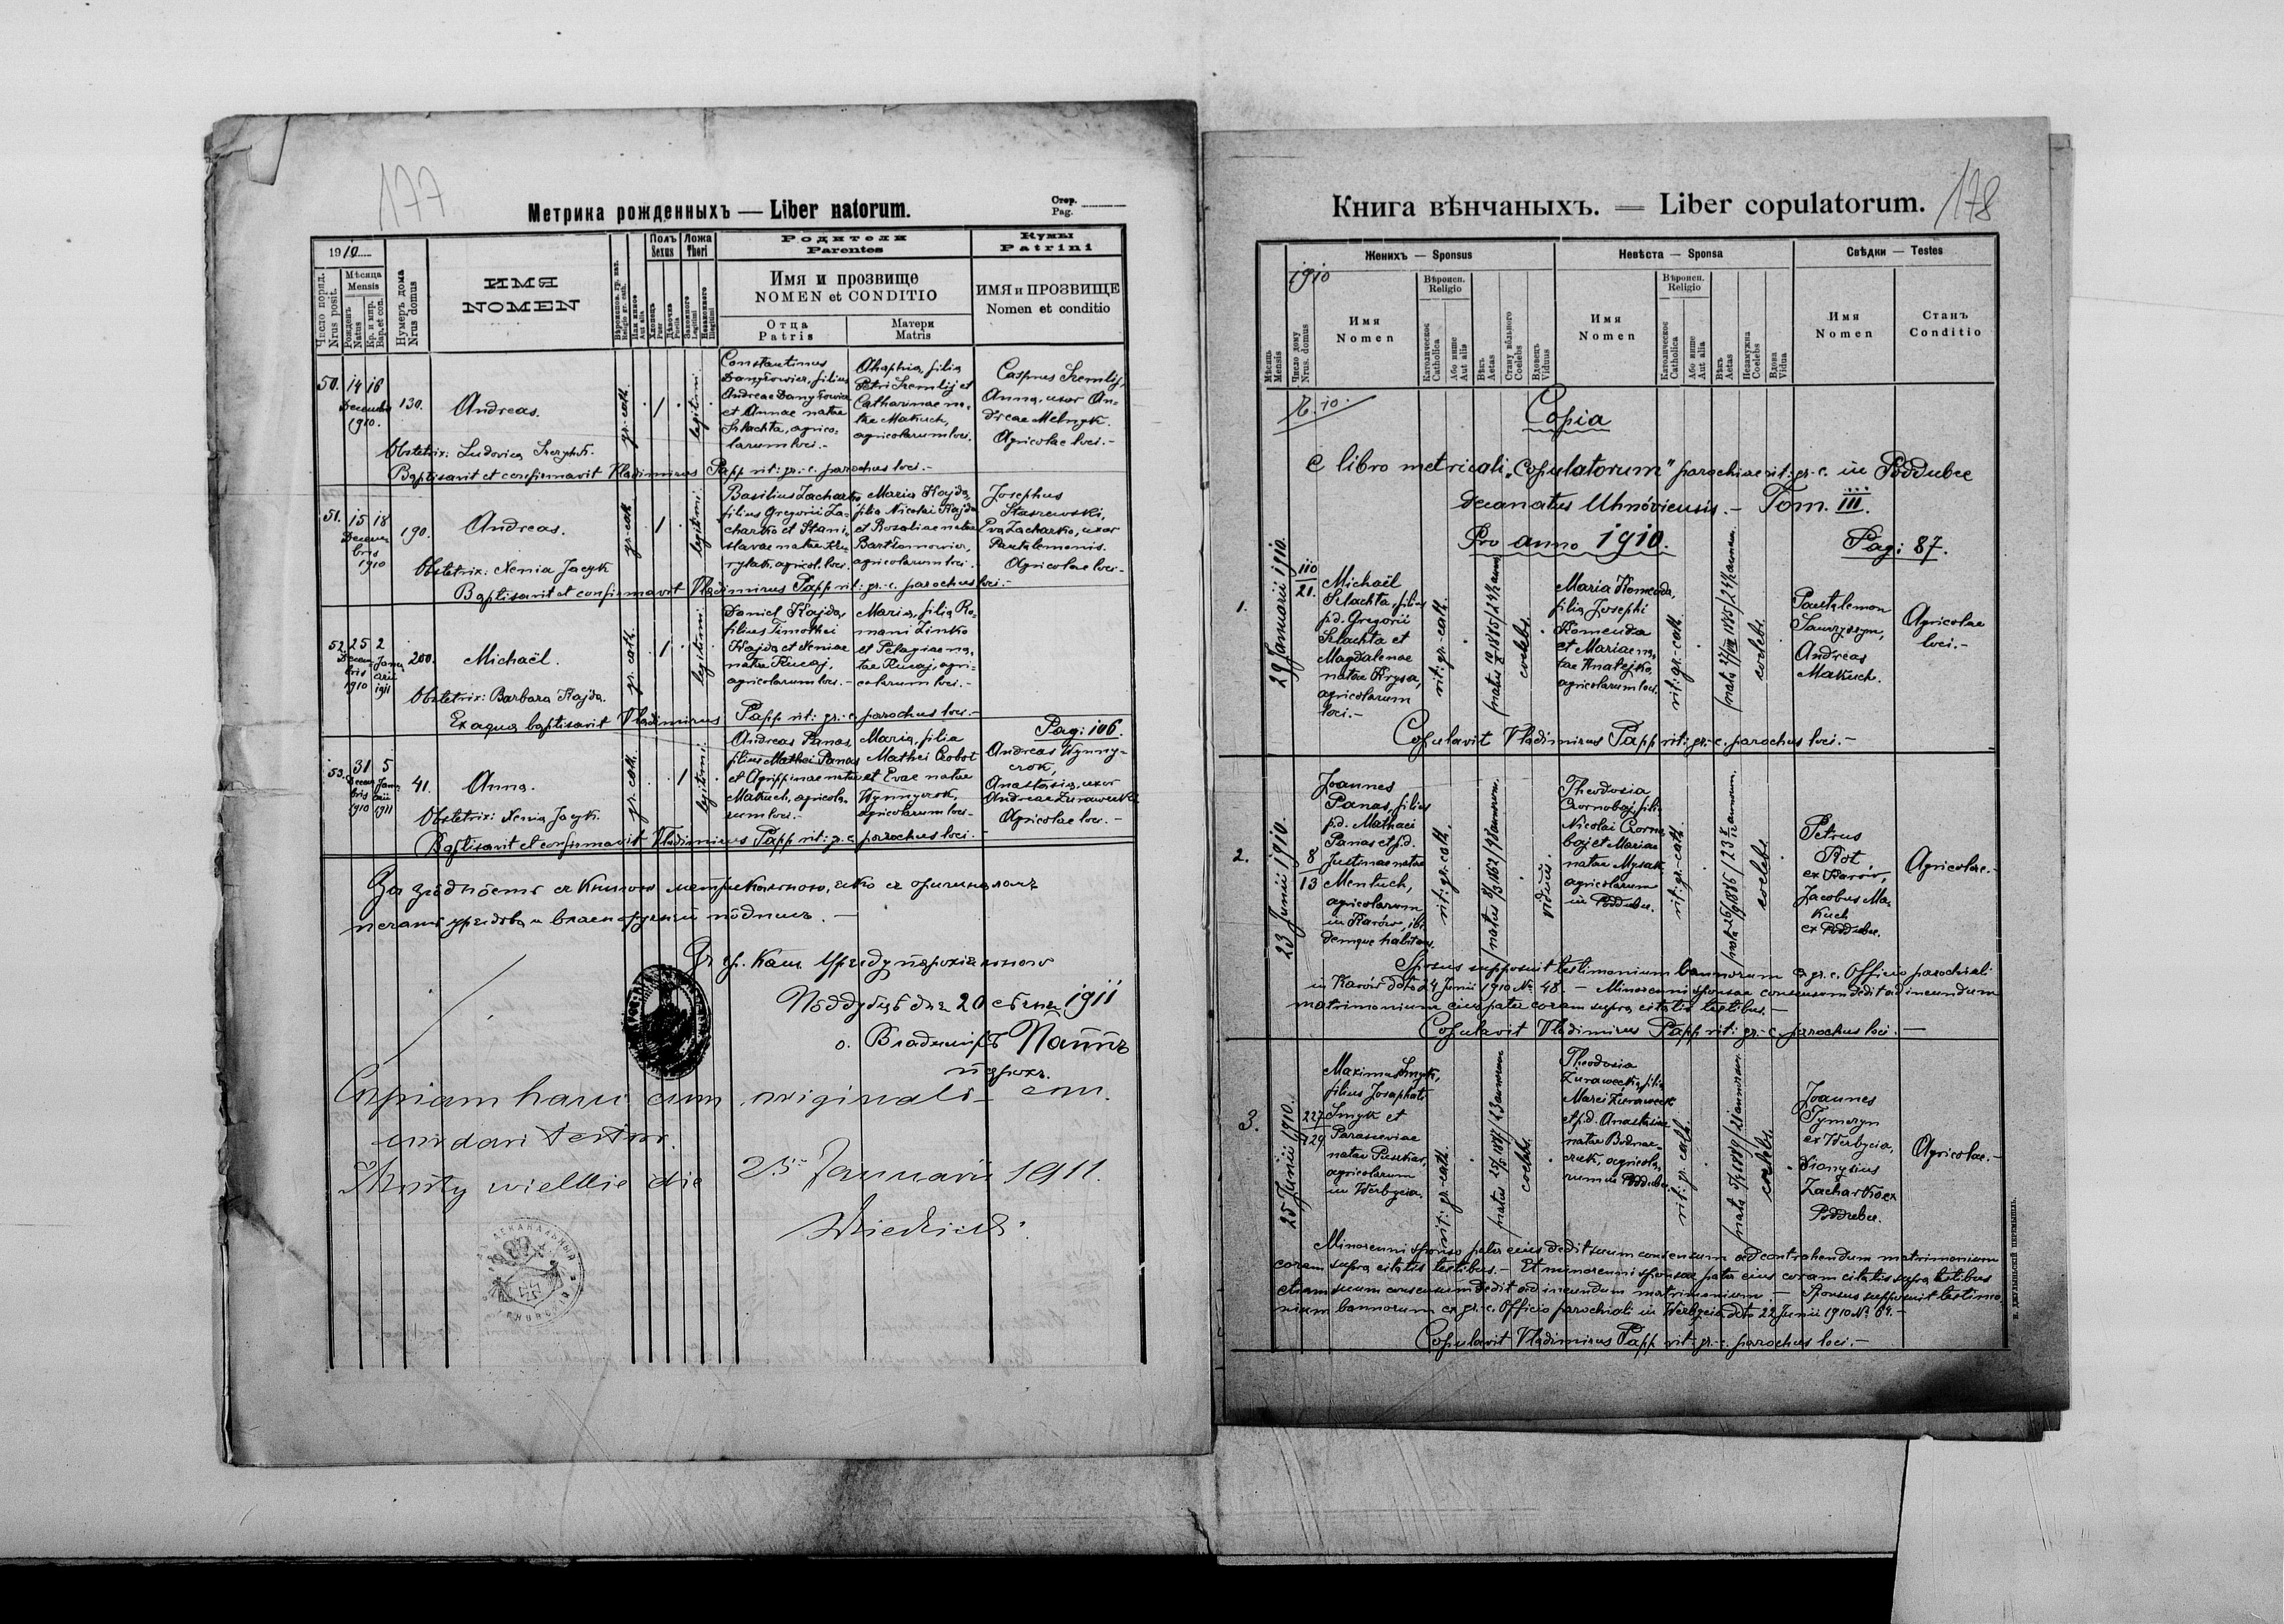 177
Метрика рожденныхъ — Liber natorum.
Стор.
Pag.
1910
Число поряд.
Nrus posit.
Мѣсяца
Mensis
Рожденъ
Natus
Кр. и мир.
Bap. et con.
Нумеръ дома
Nrus domus
ИМЯ
NOMEN
Полъ
Sexus
Ложа
Thori
Родители
Parentes
Имя и прозвище
NOMEN et CONDITIO
Отца
Patris
Матери
Matris
Кумы
Patrini
ИМЯ и ПРОЗВИЩЕ
Nomen et conditio
50.
14 16
Decembr.
1910.
130.
Andreas.
gr.-cath.
1
legitimi
Constantinus
Danyłowicz, filius
Andreae Danyłowicz
et Annae natae
Szlachta, agrico-
larum loci.-
Ahaphia, filia
Petri Szemlij et
Catharinae na-
tae Makuch,
agricolarum loci.
Casprus Szemlij,
Anna, uxor An-
dreae Melnyk.
Agricolae loci.-
Obstetrix: Ludovica
Baptisavit et confirmavit Vladimirus Papp rit: gr.-c. parochus loci.-
51.
15 18
Decem-
bris
1910
190.
Andreas.
gr-cath
1
legitimi
Basilius Zacharko,
filius Gregorii Za-
charko et Stani-
slavae natae Ku-
rylak, agricol. loci.
Maria Hajda,
filia Nicolai Hajda
et Rosaliae natae
Bartłomowicz,
agricolarum loci.
Josephus
Staszewski,
Eva Zacharko, uxor
Pantalemonis.
Agricolae loci.-
Obstetrix: Xenia Jacyk
Baptisavit et confirmavit Vladimirus Papp rit: gr.-c. parochus loci.-
52.
25 2
Decem- Janu-
bris arii
1910 1911
200.
Michaël.
gr. cath.
1
legitimi
Daniel Hajda,
filius Timothei
Hajda et Xeniae
natae Rucaj,
agricolarum loci.-
Maria, filia Ro-
mani Zinko
et Pelagiae na-
tae Rucaj, agri-
colarum loci.-
Obstetrix: Barbara Hajda.
Ex aqua baptisavit Vladimirus Papp rit: gr.-c. parochus loci.-
Pag: 106.
53.
31 5
Decem- Janu-
bris arii
1910 1911
41.
Anna.
gr.-cath.
1
legitimi
Andreas Panas,
filius Mathei Panas
et Agrippinae natae
Makuch, agricola-
rum loci.-
Maria, filia
Mathei Chobot
et Evae natae
Wynnyczok,
agricolarum loci.-
Andreas Wynny-
czok,
Anastasia, uxor
Andreae Żurawecki.
Agricolae loci.-
Obstetrix: Xenia Jacyk.
Baptisavit et confirmavit Vladimirus Papp rit: gr.-c. parochus loci.-
За згôдность съ Книгою метрикальною, яко съ оригиналомъ
печать уряdова и власноручный пôдпись.-
Зъ гр. кат. Уряду парохіяльного
Пôддубцѣ дня 20 сѣчня 1911
о. Владиміръ Паппъ
парохъ.
Copiam hanc cum originali con-
cordari testor.
Mosty wielkie die 25 Januarii 1911.
178
Книга вѣнчаныхъ. — Liber copulatorum.
1910
Женихъ — Sponsus
Невѣста — Sponsa
Свѣдки — Testes
Мѣсяць
Mensis
Число дому
Nrus. domus
Имя
Nomen
Вѣроисп.
Religio
Католическое
Catholica
Або инше
Aut alia
Вѣкъ
Aetas
Стану вôльного
Coelebs
Вдовецъ
Viduus
Имя
Nomen
Вѣроисп.
Religio
Католическое
Catholica
Або инше
Aut alia
Вѣкъ
Aetas
Незамужна
Coelebs
Вдова
Vidua
Имя
Nomen
Станъ
Conditio
Copia
e libro metricali „Copulatorum" parochiae rit: gr.-c. in Poddubce
decanatus Uhnóviensis.- Tom. III.
Pro anno 1910.
Pag: 87.
1.
29 Januarii 1910.
110
21.
Michaël
Szlachta, filius
p.d. Gregorii
Szlachta et
Magdalenae
natae Krysa,
agricolarum
loci.-
rit: gr.-cath.
coelebs
Maria Komenda,
filia Josephi
Komenda
et Mariae na-
tae Hnatejko,
agricolarum loci.
rit: gr.-cath.
coelebs
Pantalemon
Sawryszyn,
Andreas
Makuch.
Agricolae
loci.-
Copulavit Vladimirus Papp rit: gr.-c. parochus loci.-
2.
23 Junii 1910.
8
13
Joannes
Panas, filius
p.d. Mathaei
Panas et p.d.
Justinae natae
Mentuch,
agricolarum
in Karów, ibi-
demque habitans.
rit: gr.-cath.
viduus.
Theodosia
Czornobaj, filia
Nicolai Czorno-
baj et Mariae
natae Mysak,
agricolarum
in Poddubce.
rit: gr.-cath.
coelebs
Petrus
Kot
ex Karów,
Jacobus Ma-
kuch
ex Poddubce.
Agricolae.-
Sponsus supposuit testimonium bannorum ex gr. c. Officio parochiali
in Karów ddto 24 Junii 1910 № 48.- Minorenni sponsae consensum dedit ad ineundum
matrimonium eius pater coram supra citatis testibus.-
Copulavit Vladimirus Papp rit: gr.-c. parochus loci.-
3.
25 Junii 1910.
227
129
Maximus Smyk,
filius Josaphati
Smyk et
Parasceviae
natae Puszkar,
agricolarum
in Werbycia.
rit: gr.-cath.
coelebs
Theodosia
Żurawecka, filia
Marci Żurawecki
et p.d. Anastasiae
natae Bodnar-
czuk, agricola-
rum in Poddubce.
rit: gr. cath.
coelebs
Joannes
Tymczyn
ex Werbycia,
Dionysius
Zacharko ex
Poddubce.
Agricolae.-
Minorenni sponso pater eius dedit suum consensum ad contrahendum matrimonium
coram supra citatis testibus.- Et minorenni sponsae pater eius coram citatis supra testibus
etiam suum consensum dedit ad ineundum matrimonium.- Sponsus supposuit testimo-
nium bannorum ex gr.-c. Officio parochiali in Werbycia ddto 22 Junii 1910 № 69.-
Copulavit Vladimirus Papp rit: gr.-c. parochus loci.-